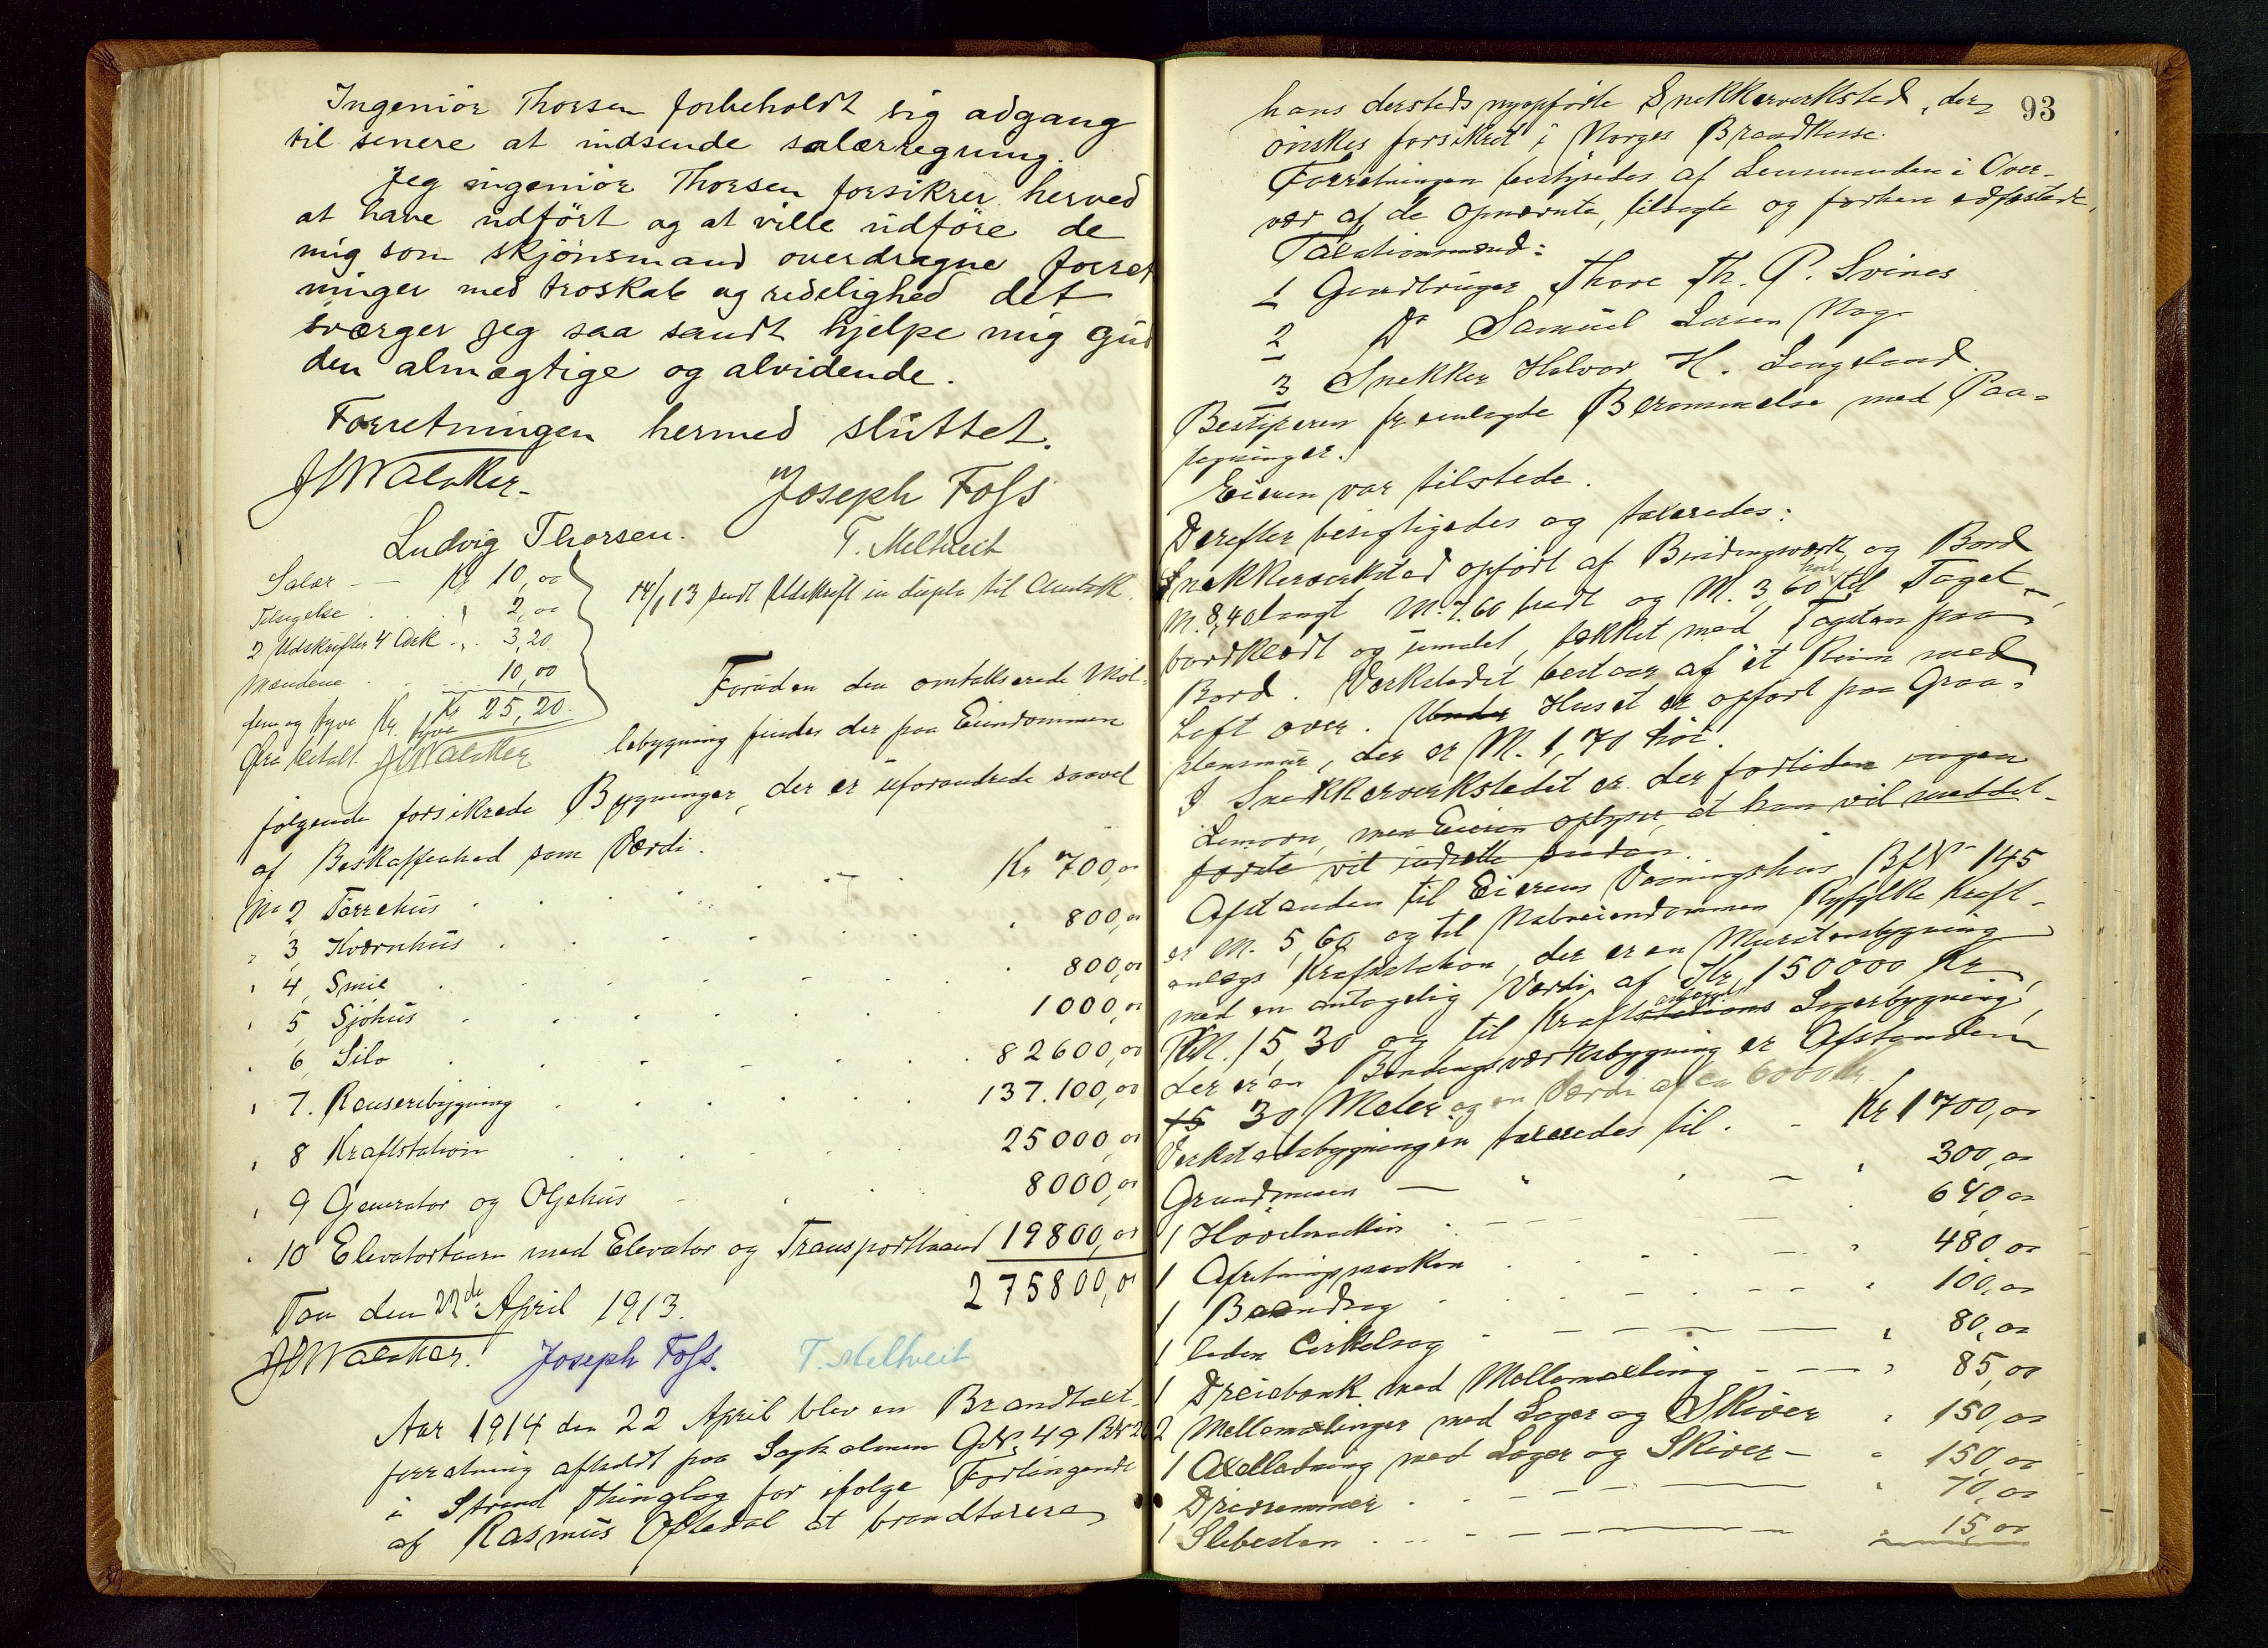 Ingeniör Thorsen forbeholdt sig adgang
til senere at indsende salærregning.
Jeg ingeniör Thorsen forsikrer herved
at have udfört og at ville udföre de
mig som skjönsmand overdragne forret
ninger med troskab og redelighed det
sværger jeg saa sandt hjelpe mig Gud
den almægtige og alvidende.
Forretningen hermed sluttet.
Joseph Foss
Ludvig Thorsen.
T. Meltveit
Salær — Kr 10,00
Tilsigelse " 2,00
2 Udskrifter 4 Ark " 3,20
Mændene 10,00
Kr 25,20
fem og tyve Kr. tyve
Øre betalt.
14/1 13 sendt Udskrift in duplo til Amtsk.
Foruden den omtakserede Möl-
lebygning findes der paa Eiendommen
følgende forsikrede Bygninger, der er uforandrede saavel
af Beskaffenhed som Værdi.
No 2, Tørrehus Kr 700,00
" 3, Kværnhus " 800,00
" 4, Smie " 800,00
" 5, Sjöhus 1000,00
" 6, Silo 82600,00
" 7. Renseribygning 137.100,00
" 8 Kraftstation 25000,00
" 9 Generator og Oljehus 8000,00
" 10 Elevatortaarn med Elevator og Transportbaand 19800,00
275800,00
Tau den 22de April 1913.
Joseph Foss. T. Meltveit
Aar 1914 den 22 April blev en Brandtaxt-
forretning afholdt paa Sagholmen GN. 49 BN 20
i Strand Thinglag for ifølge Forlangende
af Rasmus Oftedal at brandtaxere
93
hans dersteds nyopförte Snekkerverksted, der
önskes forsikret i Norges Brandkasse.
Forretningen bestyredes af Lensmanden i Over-
vær af de opnævnte, tilsagte og forhen edfæstede
Taxationsmænd:
1 Gaardbruger Thore Th. P. Svines
2 Do Samuel Larsen Nag
3 Snekker Halvor H. Langeland.
Bestyreren fremlagde Berammelse med Paa-
tegninger.
Eieren var tilstede.
Derefter besigtigedes og taxeredes:
Snekkerverksted opfört af Bindingsværk og Bord
M. 8,40 langt M. 7.60 bredt og M. 3,60 höit til Taget,
bordklædt og umalet, tækket med Tagsten paa
Bord. Verkstedet bestaar af et Rum med
Loft over. Under Huset er opfört paa Graa-
stensmur, der er M. 1,70 höi.
I Snekkerverkstedet er der fortiden ingen
Limovn, men Eieren oplyser, at han vil med det-
første vil indrette saadan.
Afstanden til Eierens Vaaningshus BfN 145
er M. 5,60 og til Naboeiendommen Ryfylke Kraft-
anlægs Kraftstation, der er en Murstensbygning
med en antagelig Værdi af Kr 150000 Kr,
M. 15,30 og til Kraftstations anlægets Lagerbygning,
der er en Bindingsværksbygning er Afstanden
15 30 Meter og en Værdi af ca 6000 Kr.
Verkstedsbygningen taxeredes til - Kr 1700,00
Grundmuren — " " 300,00
1 Hövlmaskin 640,00
1 Afretningsmaskin " 480,00
1 Baandsag " 100,00
1 liden Cirkelsag " 80,00
1 Dreiebænk med Mellemaxling " 85,00
2 Mellemaxlinger med Lager og Skiver " 150,00
1 Axelledning med Lager og Skiver — " 150,00
Drivremmer " 70,00
1 Slibesten " 15,00